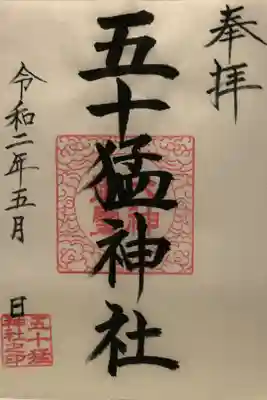 奉拝
五十猛神社
令和二年五月 日
五十猛
神社之印